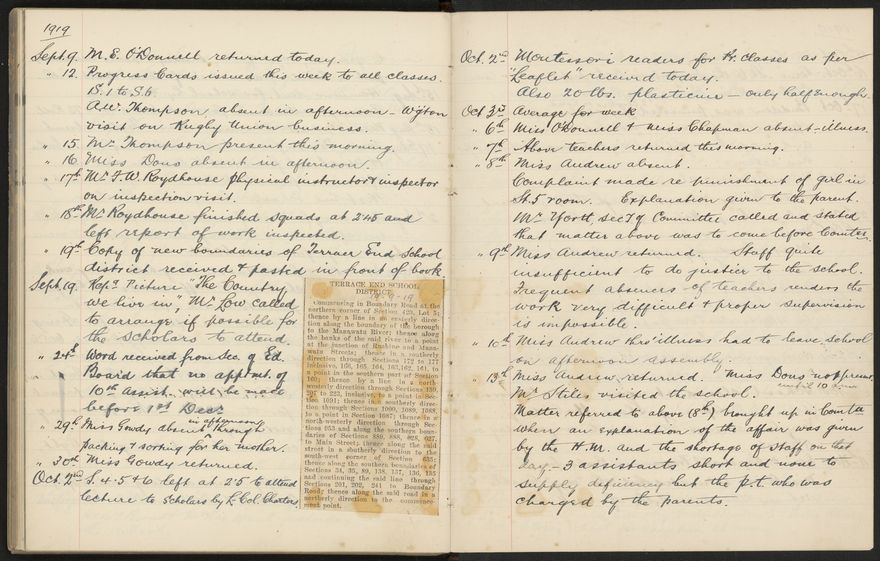 1919
Sept. 9. M. E. O'Donnell returned today.
" 12. Progress Cards issued this week to all classes.
S. 1 to S. 6
Thompson absent in afternoon - Wgton
visit on Rugby Union business.
" 15. Mr Thompson present this morning.
" 16. Miss Dons absent in afternoon.
" 17th Mr F. W. Roydhouse physical instructor & inspector
on inspection visit.
" 18th Mr Roydhouse finished squads at 2 45 and
left report of work inspected.
" 19th Copy of new boundaries of Terrace End School
district received & pasted in front of book
Sept. 19. Picture "The Country
we live in", Mr Low called
to arrange if possible for
the scholars to attend.
" 24th Word received from Sec. of Ed.
Board that no appmt. of
10th assist. will be made
before 1st Dec.
" 29th Miss Gowdy absent in afternoon through
packing & sorting for her mother.
" 30th Miss Gowdy returned.
Oct. 2nd S. 4. 5 & 6 left at 2.5 to attend
lecture to scholars by Lt. Col. Charters.
TERRACE END SCHOOL
DISTRICT.
19-9-19
Commencing in Boundary Road at the
northern corner of Section 423, Lot 5;
thence by a line in an easterly direc-
tion along the boundary of the borough
to the Manawatu River; thence along
the banks of the said river to a point
at the junction of Ruahine and Mana-
watu Streets; thence in a southerly
direction through Sections 172 to 177
inclusive, 166, 165, 164, 163, 162, 161, to
a point in the southern part of Section
160; thence by a line in a north-
westerly direction through Sections 339,
to 223, inclusive, to a point in Sec-
tion 1091; thence in southerly direc-
tion through Sections 1090, 1089, 1088,
to a point in Section 1087; thence in a
north-westerly direction through Sec-
tion 953 and along the southern boun-
daries of Sections 889, 888, 628, 627,
to Main Street; thence along the said
street in a southerly direction to the
south-west corner of Section 635;
thence along the southern boundaries of
Sections 34, 35, 89, 138, 137, 136, 135
and continuing the said line through
Sections 201, 202, 241 to Boundary
Road; thence along the said road in a
northerly direction to the commence-
ment point.
Oct. 2nd Montessori readers for Pr. classes as per
"Leaflet" received today.
Also 20 lbs. plasticine - only half enough.
Oct 3rd Average for week
" 6th Miss O'Donnell & Miss Chapman absent - illness.
" 7th Above teachers returned this morning.
" 8th Miss Andrew absent.
Complaint made re punishment of girl in
St. 5 room. Explanation given to the parent.
Mr North secty of Committee called and stated
that matter above was to come before Comtee.
" 9th Miss Andrew returned. Staff quite
insufficient to do justice to the school.
Frequent absences of teachers renders the
work very difficult & proper supervision
is impossible.
" 10th Miss Andrew thro' illness had to leave school
on afternoon assembly.
" 13th Miss Andrew returned. Miss Dons not present
until 10
Mr Stiles visited the school.
Matter referred to above (8th) brought up in Comtee
when an explanation of the affair was given
by the H.M. and the shortage of staff on that
day - 3 assistants short and none to
supply deficiency but the p.t. who was
charged by the parents.